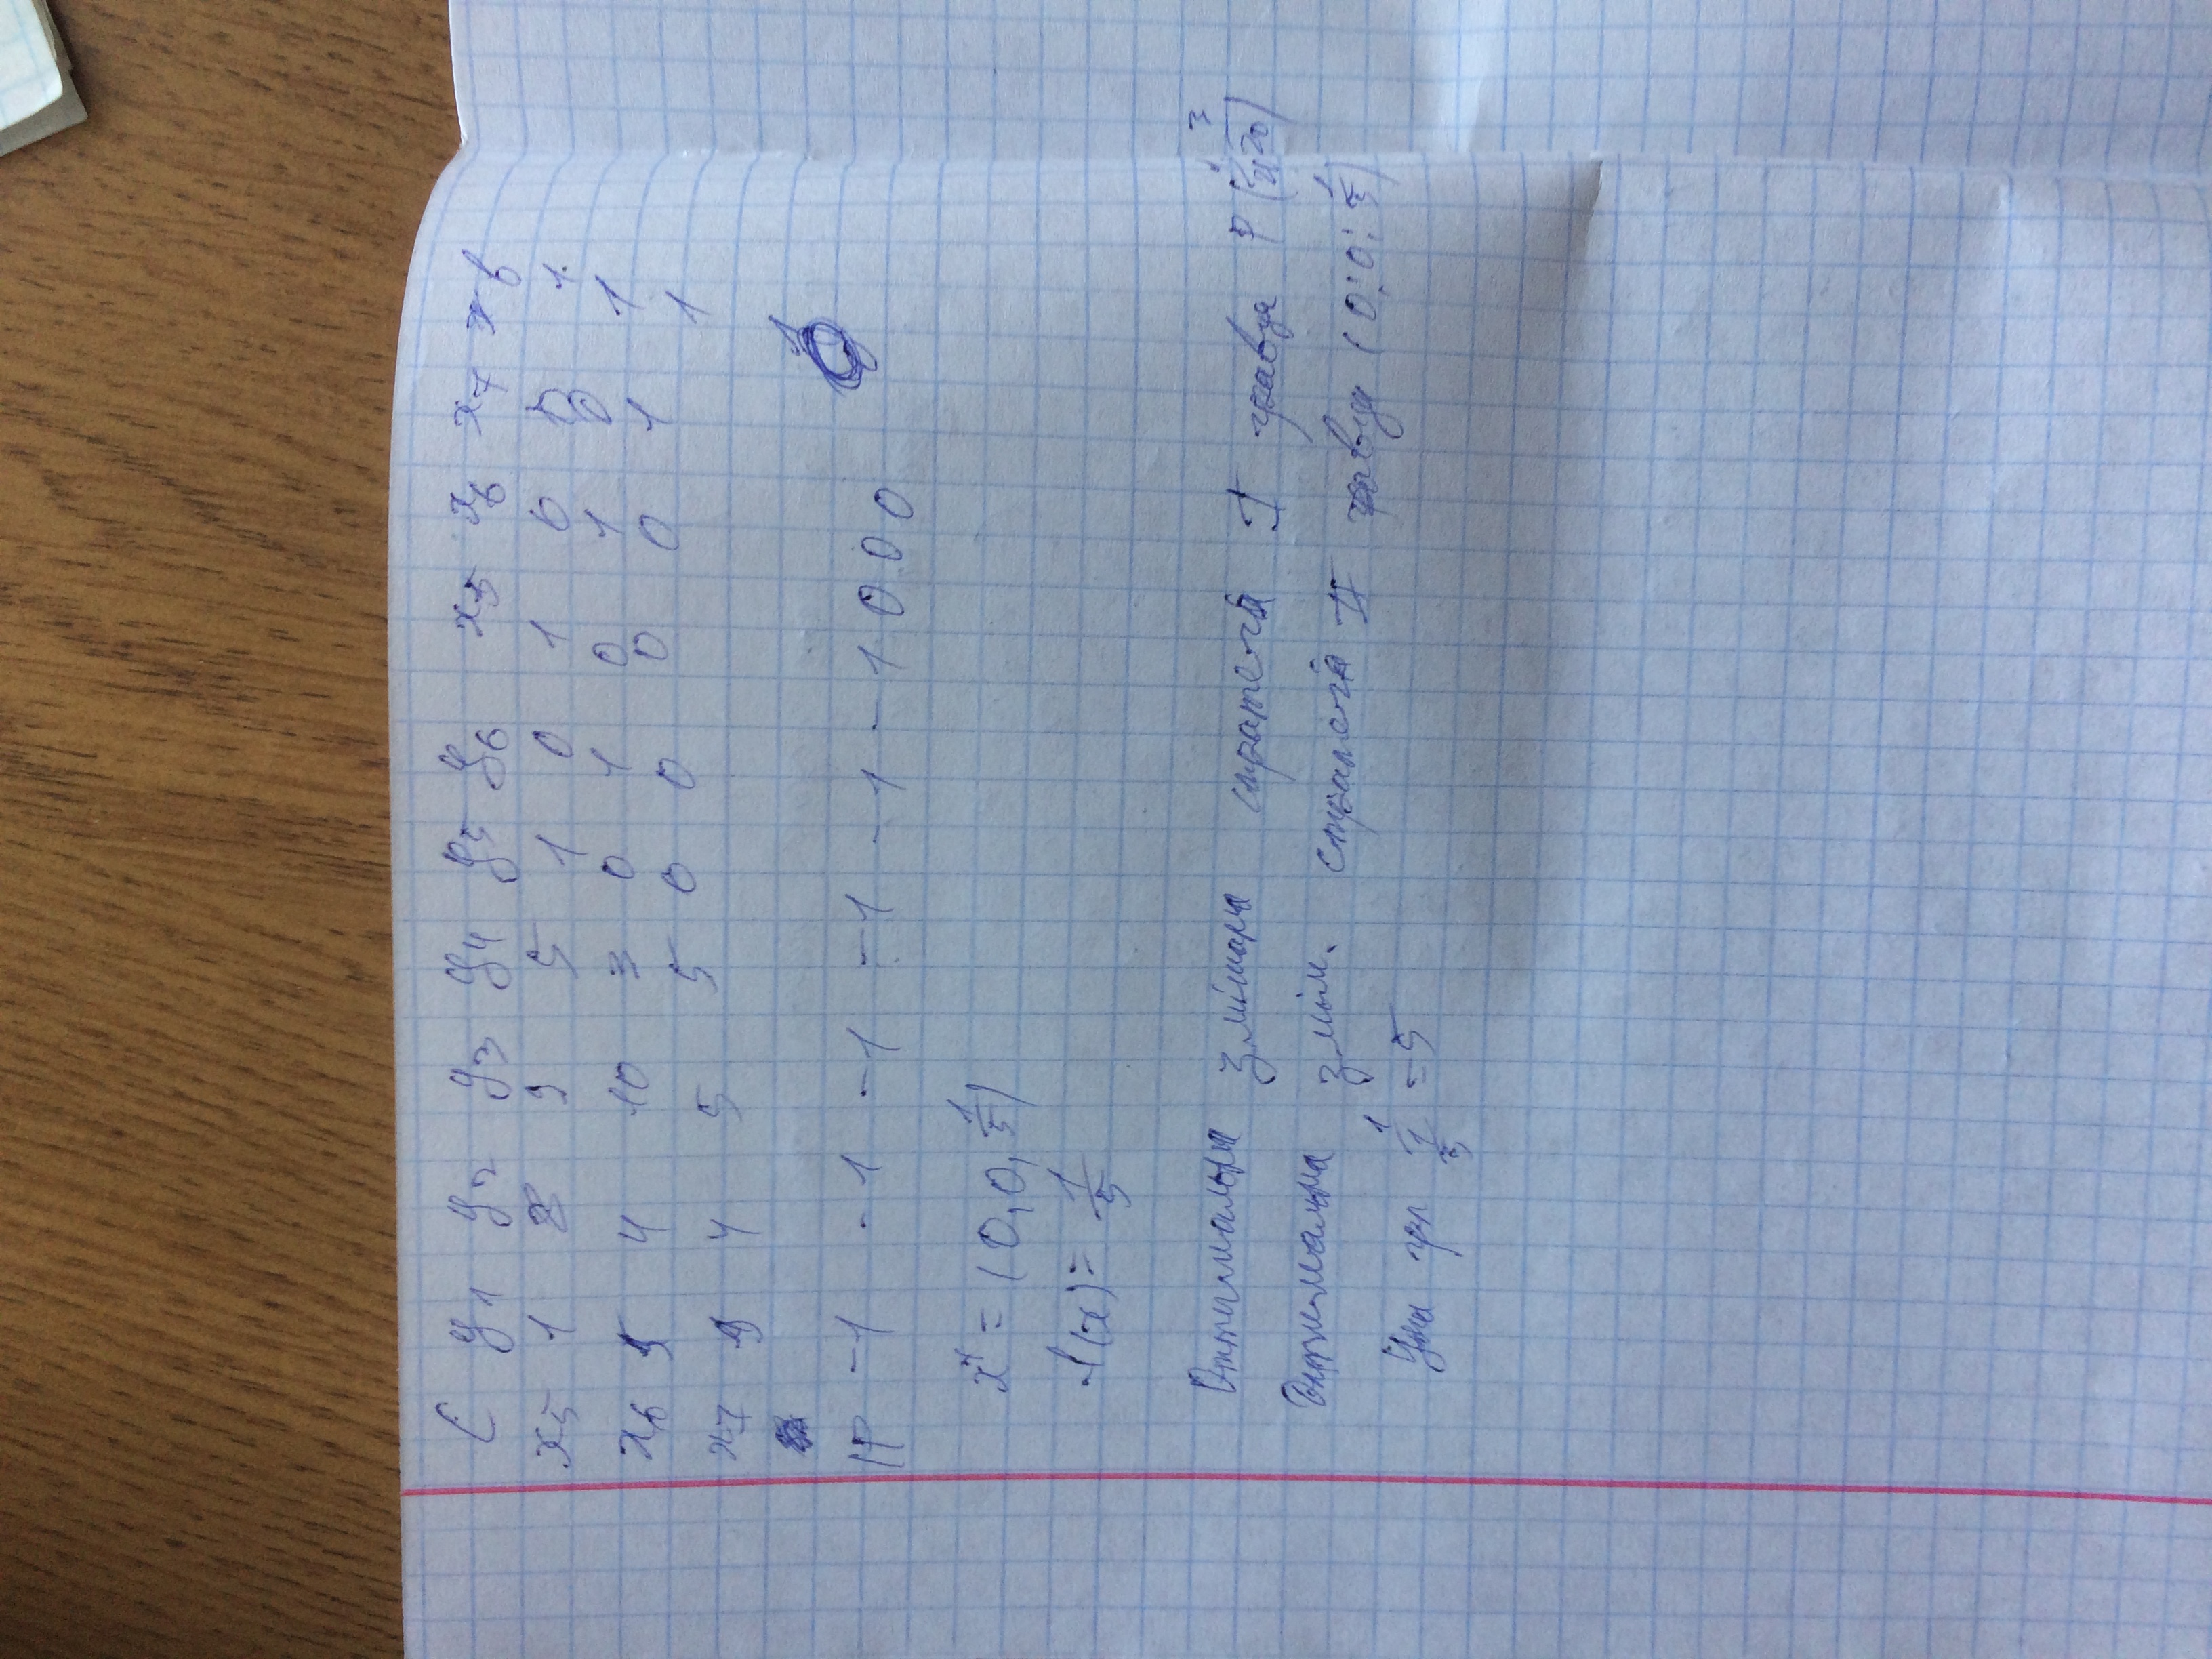 C y1 y2 y3 y4 y5 y6 x5 x6 x7 x b
x5 1 2 5 1 0 1 0 0 1
x6 5 4 10 3 0 1 0 1 0 1
x7 9 4 5 5 0 0 0 0 1 1
-1 -1 -1 -1 -1 -1 0 0 0 0
x* = (0, 0, 1/5)
f(x) = 1/5
Оптимальна змішана стратегія I гравця P (1/20 3/20)
Оптимальна зміш. стратегія II гравця (0; 0; 1/5)
Ціна гри 1/(1/5) = 5